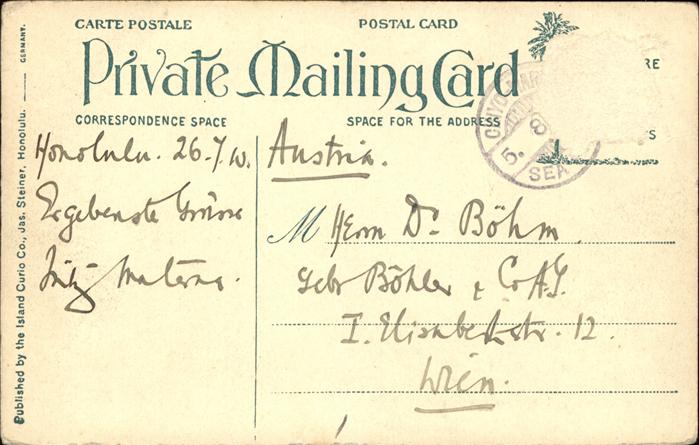 CARTE POSTALE
POSTAL CARD
Private Mailing Card
RE
S
CORRESPONDENCE SPACE
SPACE FOR THE ADDRESS
SEA
Honolulu. 26./7. 10.
Ergebenste Grüsse
Fritz Materna.
Austria.
M Herrn Dr Böhm
Gebr Böhler & Co A.G.
I. Elisabethstr. 12.
Wien.
Published by the Island Curio Co., Jas. Steiner, Honolulu. GERMANY.